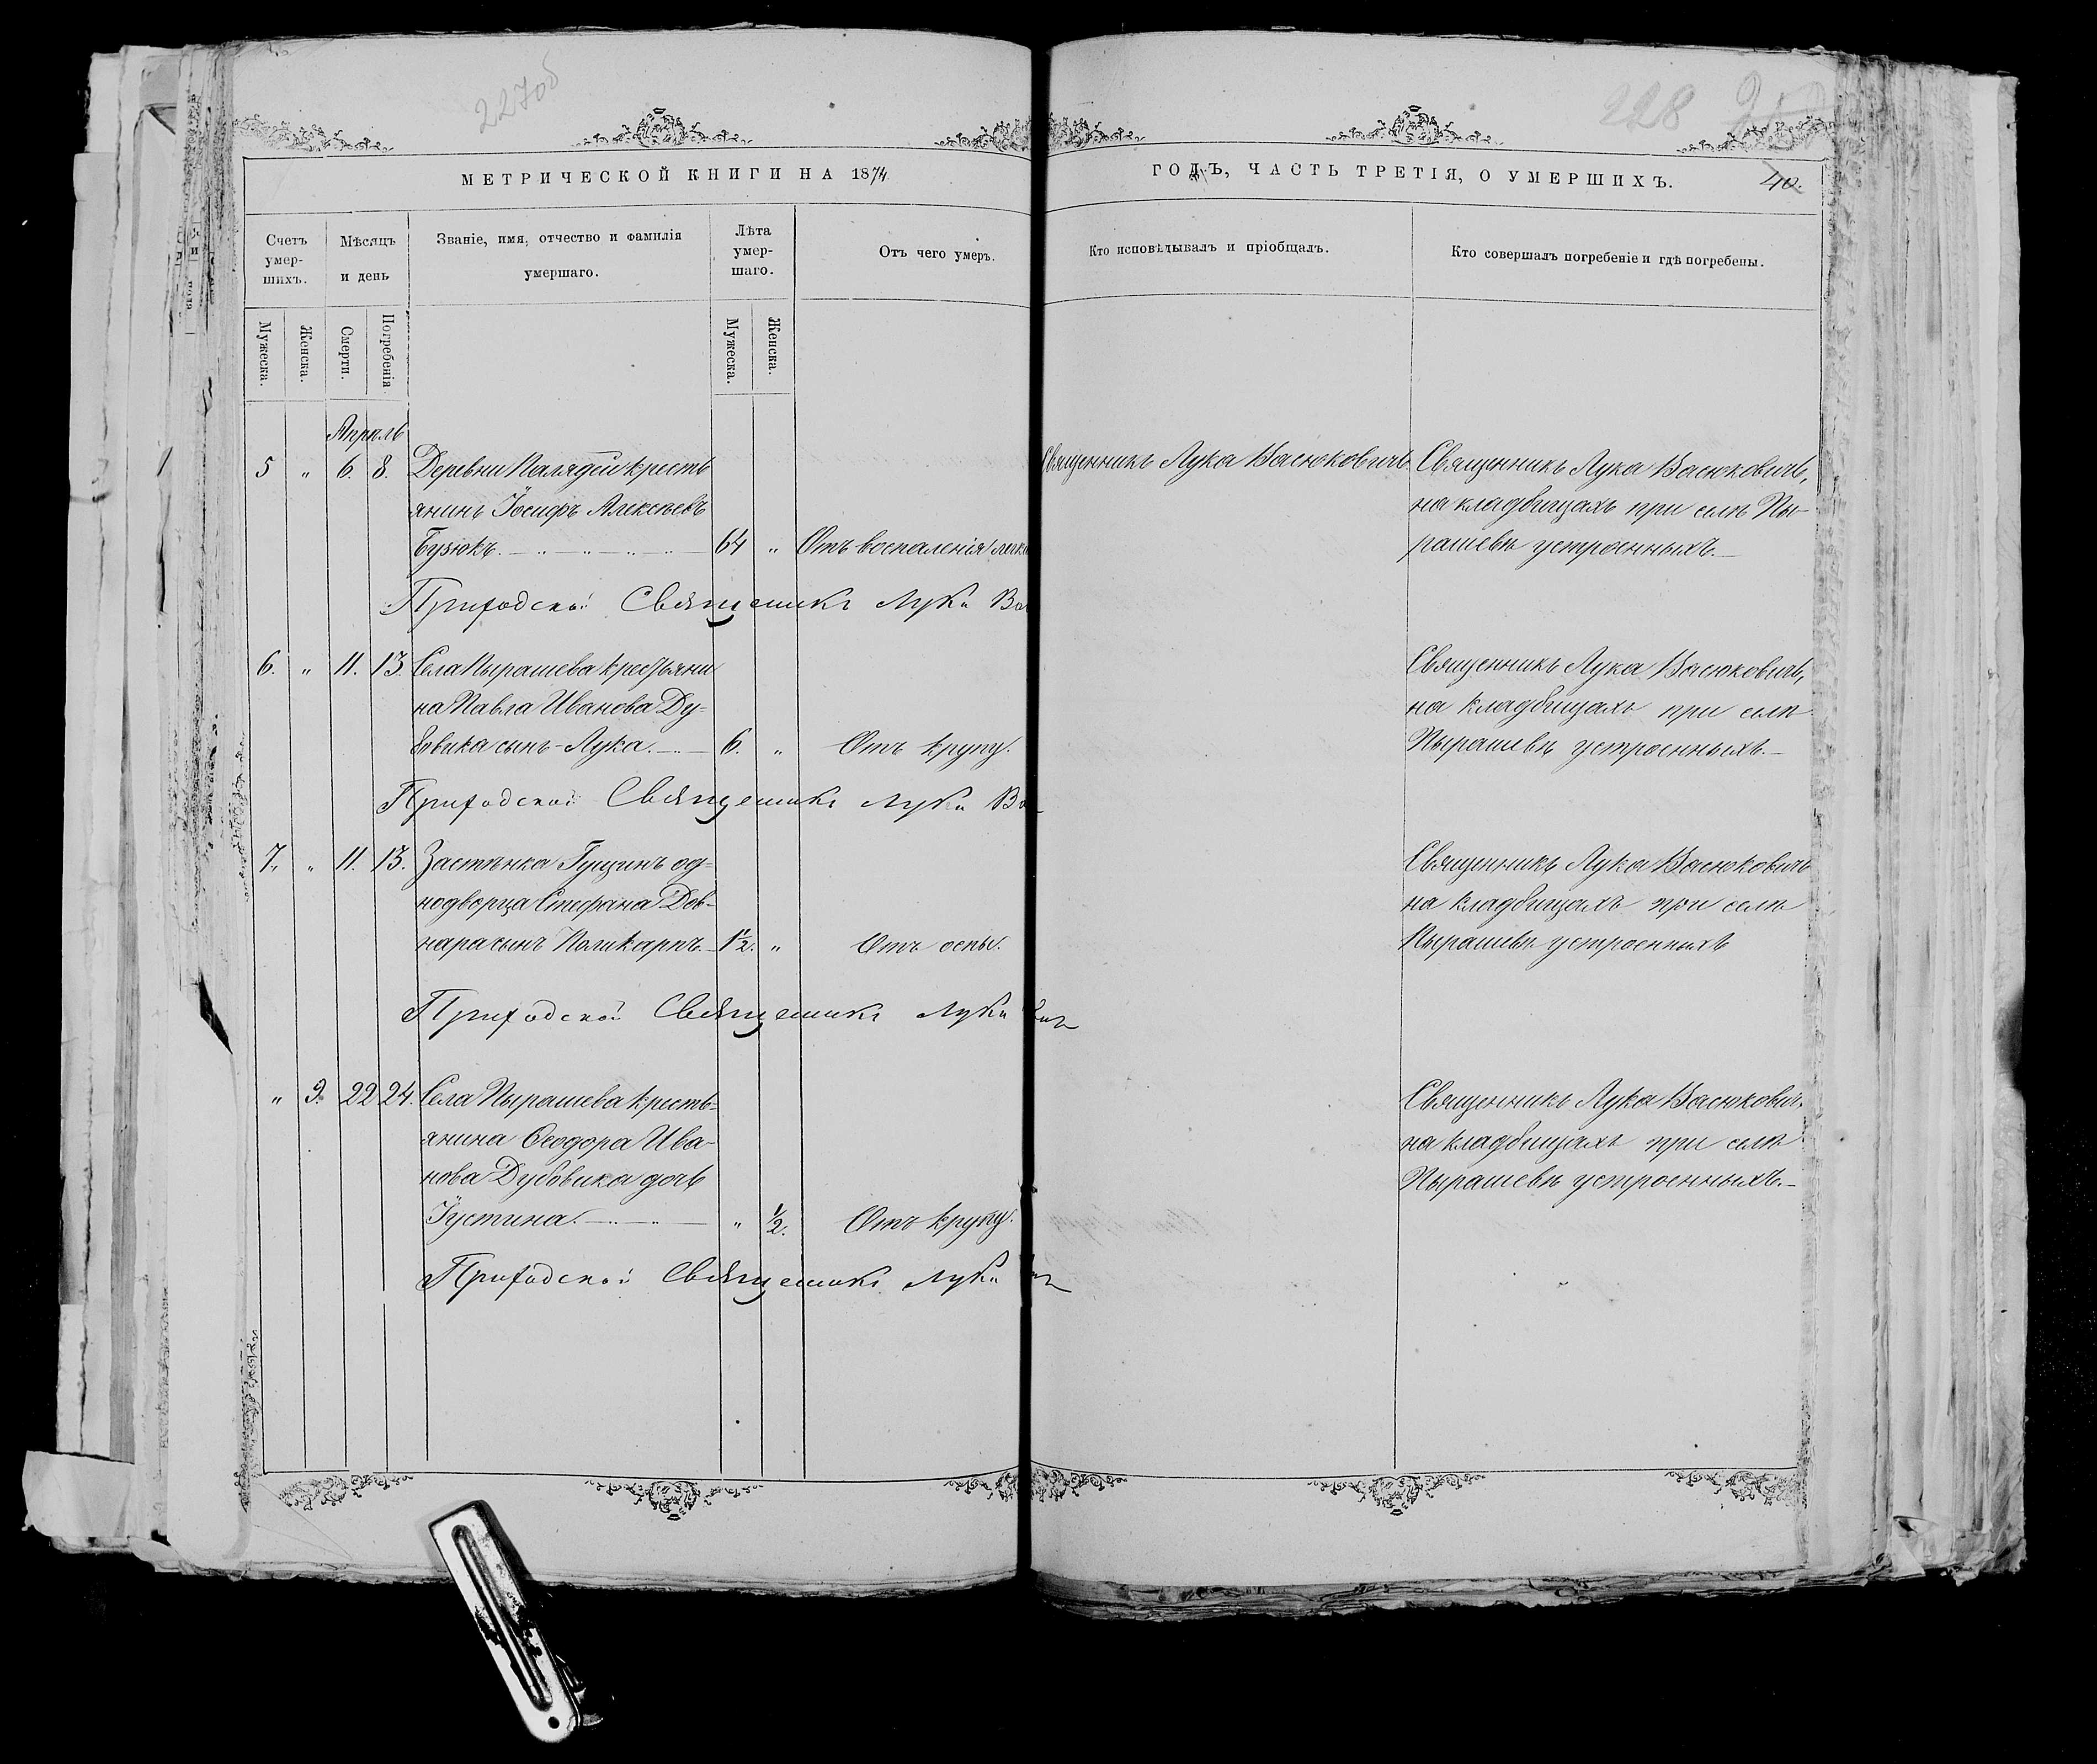 227об
228
МЕТРИЧЕСКОЙ КНИГИ НА 1874
ГОДЪ, ЧАСТЬ ТРЕТІЯ, О УМЕРШИХЪ.
40.
Счетъ умер-шихъ.
Мѣсяцъ и день
Званіе, имя, отчество и фамилія умершаго.
Лѣта умер-шаго.
Отъ чего умеръ.
Кто исповѣдывалъ и пріобщалъ.
Кто совершалъ погребеніе и гдѣ погребены.
Мужеска.
Женска.
Смерти.
Погребенія
Мужеска.
Женска.
Апрѣль
5 " 6. 8. Деревни Калядей кресть
янинъ Іосифъ Алексѣевъ
Бузюкъ. 64 " Отъ воспаленія легк
Священникъ Лука Васюковичъ
Священникъ Лука Васюковичъ,
на кладбищахъ при селѣ Пы-
рашевѣ устроенныхъ.
Приходской Священникъ Лука Ва
6. " 11. 13. Села Пырашева крестьяни
на Павла Иванова Ду-
бовика сынъ - Лука. 6. " Отъ крупу.
Священникъ Лука Васюковичъ,
на кладбищахъ при селѣ
Пырашевѣ устроенныхъ.
Приходской Священникъ Лука Ва
7. " 11. 13. Застѣнка Гущинъ од-
нодворца Стефана Дов-
нара сынъ Поликарпъ. 1½. " Отъ оспы.
Священникъ Лука Васюковичъ
на кладбищахъ при селѣ
Пырашевѣ устроенныхъ
Приходской Священникъ Лука
" 9. 22 24. Села Пырашева кресть-
янина Ѳеодора Ива-
нова Дубовика дочь
Іустина. " ½. Отъ крупу.
Священникъ Лука Васюкович,
на кладбищахъ при селѣ
Пырашевѣ устроенныхъ.
Приходской Священникъ Лука